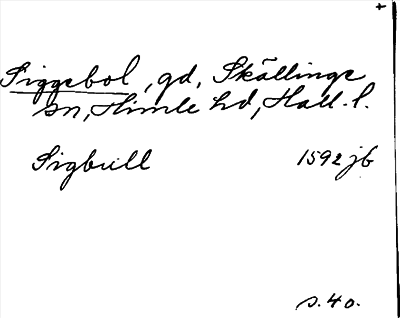 +
Siggebol, gd, Skällinge
sn, Himle hd, Hall. l.
Sigbull 1592 jb
s. 40.